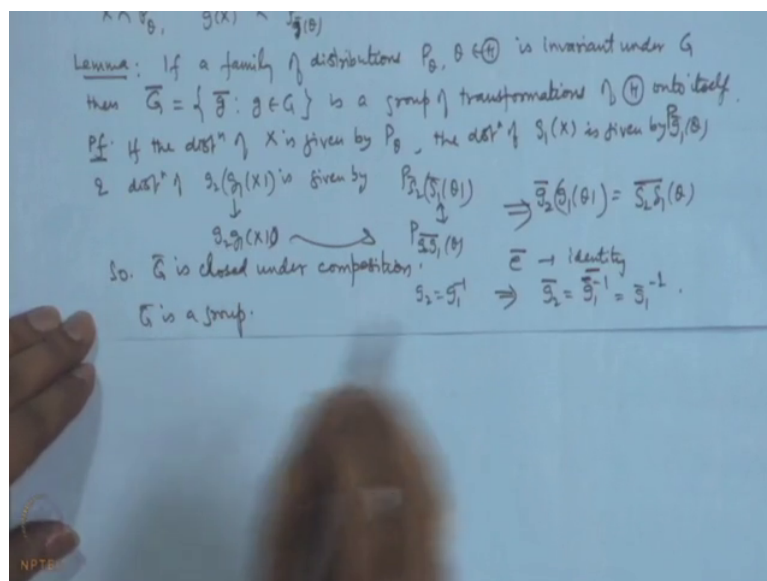 X ~ P_θ, g(X) ~ P_ḡ(θ)
Lemma: If a family of distributions P_θ, θ ∈ Ⓗ is invariant under G
then Ḡ = { ḡ : g ∈ G } is a group of transformations of Ⓗ onto itself.
Pf: If the distⁿ of X is given by P_θ, the distⁿ of g₁(X) is given by P_ḡ₁(θ)
& distⁿ of g₂(g₁(X)) is given by P_ḡ₂(ḡ₁(θ)) ⇒ ḡ₂(ḡ₁(θ)) = \overline{g₂g₁}(θ)
↓ ↕
g₂g₁(X) → P_\overline{g₂g₁}(θ)
So. Ḡ is closed under composition. ē → identity
g₂ = g₁⁻¹ ⇒ ḡ₂ = \overline{g₁⁻¹} = ḡ₁⁻¹.
Ḡ is a group.
NPTEL